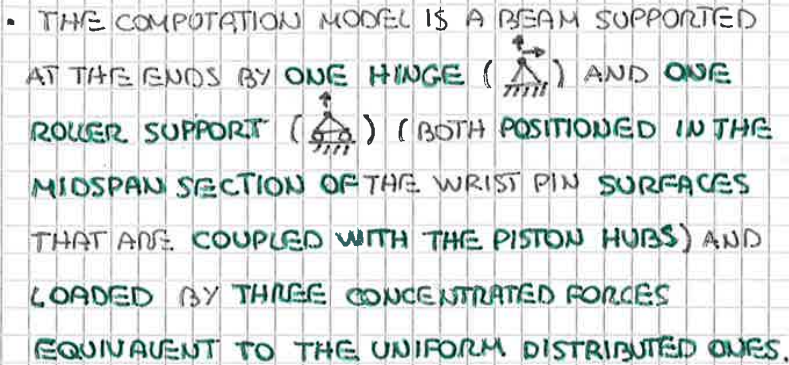 • THE COMPUTATION MODEL IS A BEAM SUPPORTED
AT THE ENDS BY ONE HINGE ( ) AND ONE
ROLLER SUPPORT ( ) (BOTH POSITIONED IN THE
MIDSPAN SECTION OF THE WRIST PIN SURFACES
THAT ARE COUPLED WITH THE PISTON HUBS) AND
LOADED BY THREE CONCENTRATED FORCES
EQUIVALENT TO THE UNIFORM DISTRIBUTED ONES.